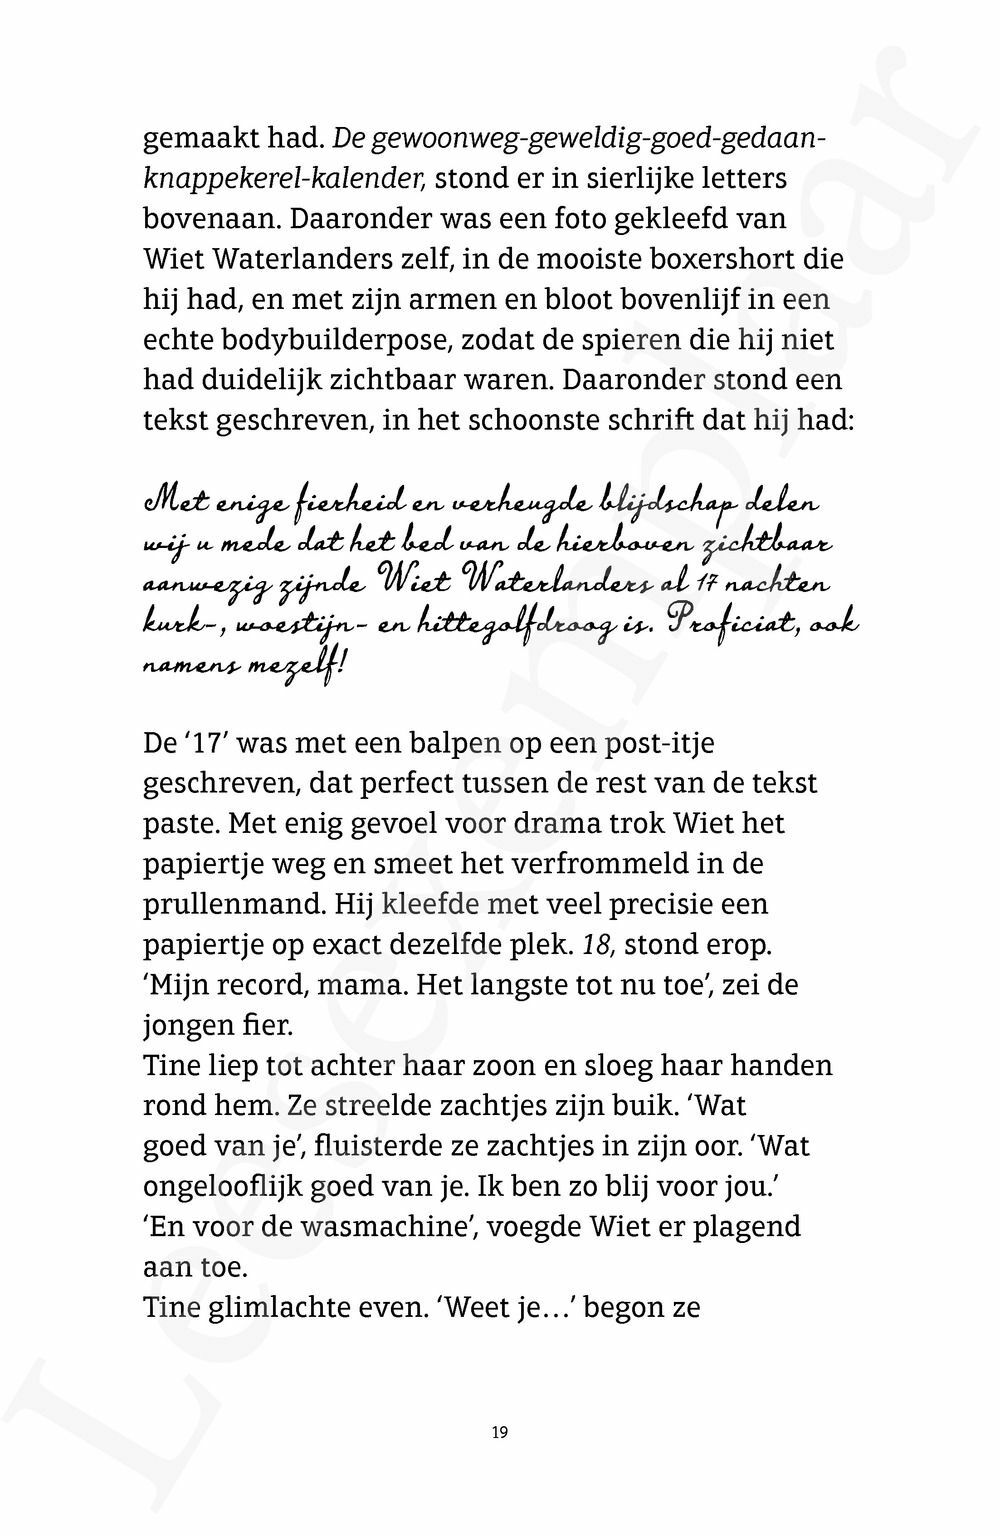 gemaakt had. De gewoonweg-geweldig-goed-gedaan-
knappekerel-kalender, stond er in sierlijke letters
bovenaan. Daaronder was een foto gekleefd van
Wiet Waterlanders zelf, in de mooiste boxershort die
hij had, en met zijn armen en bloot bovenlijf in een
echte bodybuilderpose, zodat de spieren die hij niet
had duidelijk zichtbaar waren. Daaronder stond een
tekst geschreven, in het schoonste schrift dat hij had:
Met enige fierheid en verheugde blijdschap delen
wij u mede dat het bed van de hierboven zichtbaar
aanwezig zijnde Wiet Waterlanders al 17 nachten
kurk-, woestijn- en hittegolfdroog is. Proficiat, ook
namens mezelf!
De ‘17’ was met een balpen op een post-itje
geschreven, dat perfect tussen de rest van de tekst
paste. Met enig gevoel voor drama trok Wiet het
papiertje weg en smeet het verfrommeld in de
prullenmand. Hij kleefde met veel precisie een
papiertje op exact dezelfde plek. 18, stond erop.
‘Mijn record, mama. Het langste tot nu toe’, zei de
jongen fier.
Tine liep tot achter haar zoon en sloeg haar handen
rond hem. Ze streelde zachtjes zijn buik. ‘Wat
goed van je’, fluisterde ze zachtjes in zijn oor. ‘Wat
ongelooflijk goed van je. Ik ben zo blij voor jou.’
‘En voor de wasmachine’, voegde Wiet er plagend
aan toe.
Tine glimlachte even. ‘Weet je…’ begon ze
19
Leesexemplaar